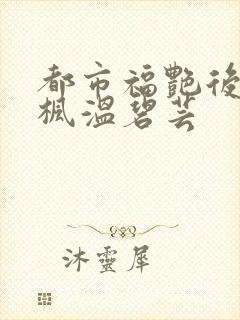 都市福艷後
楓溫碧芸
沐靈犀